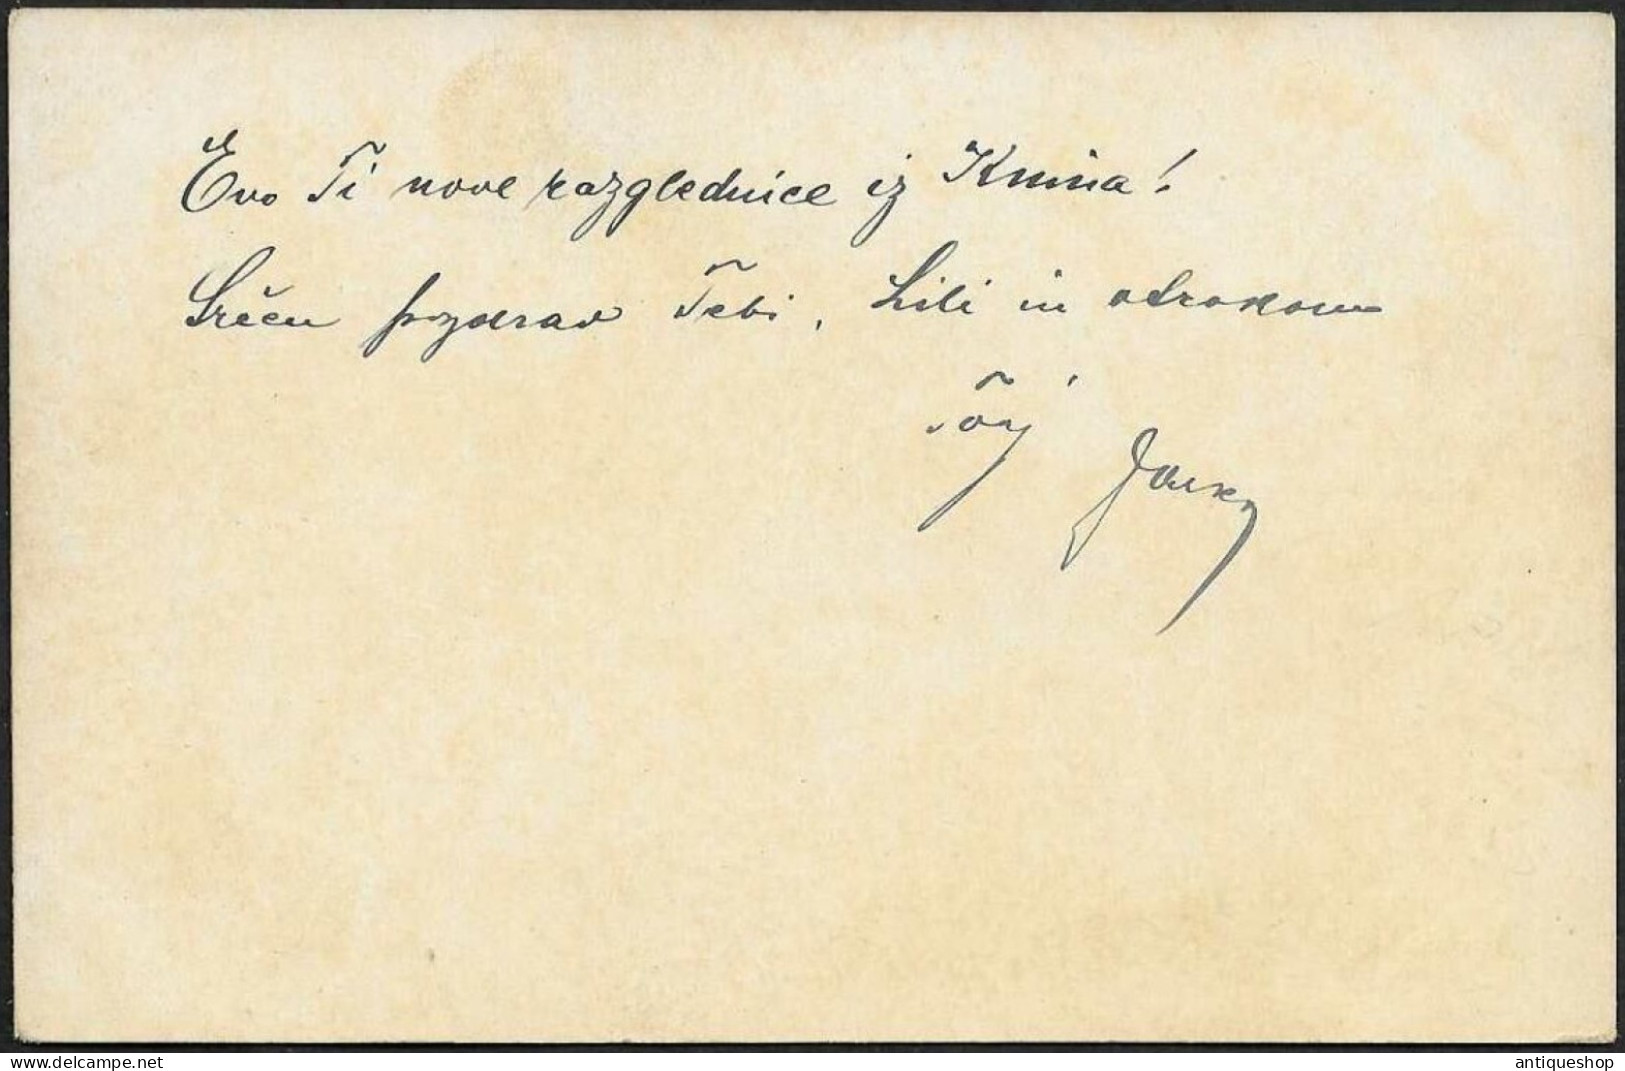 Evo Ti nove razglednice iz Knina!
Srčen pozdrav Tebi, Lili in otrokom
Tvoj Janko
antiqueshop
delcampe.net